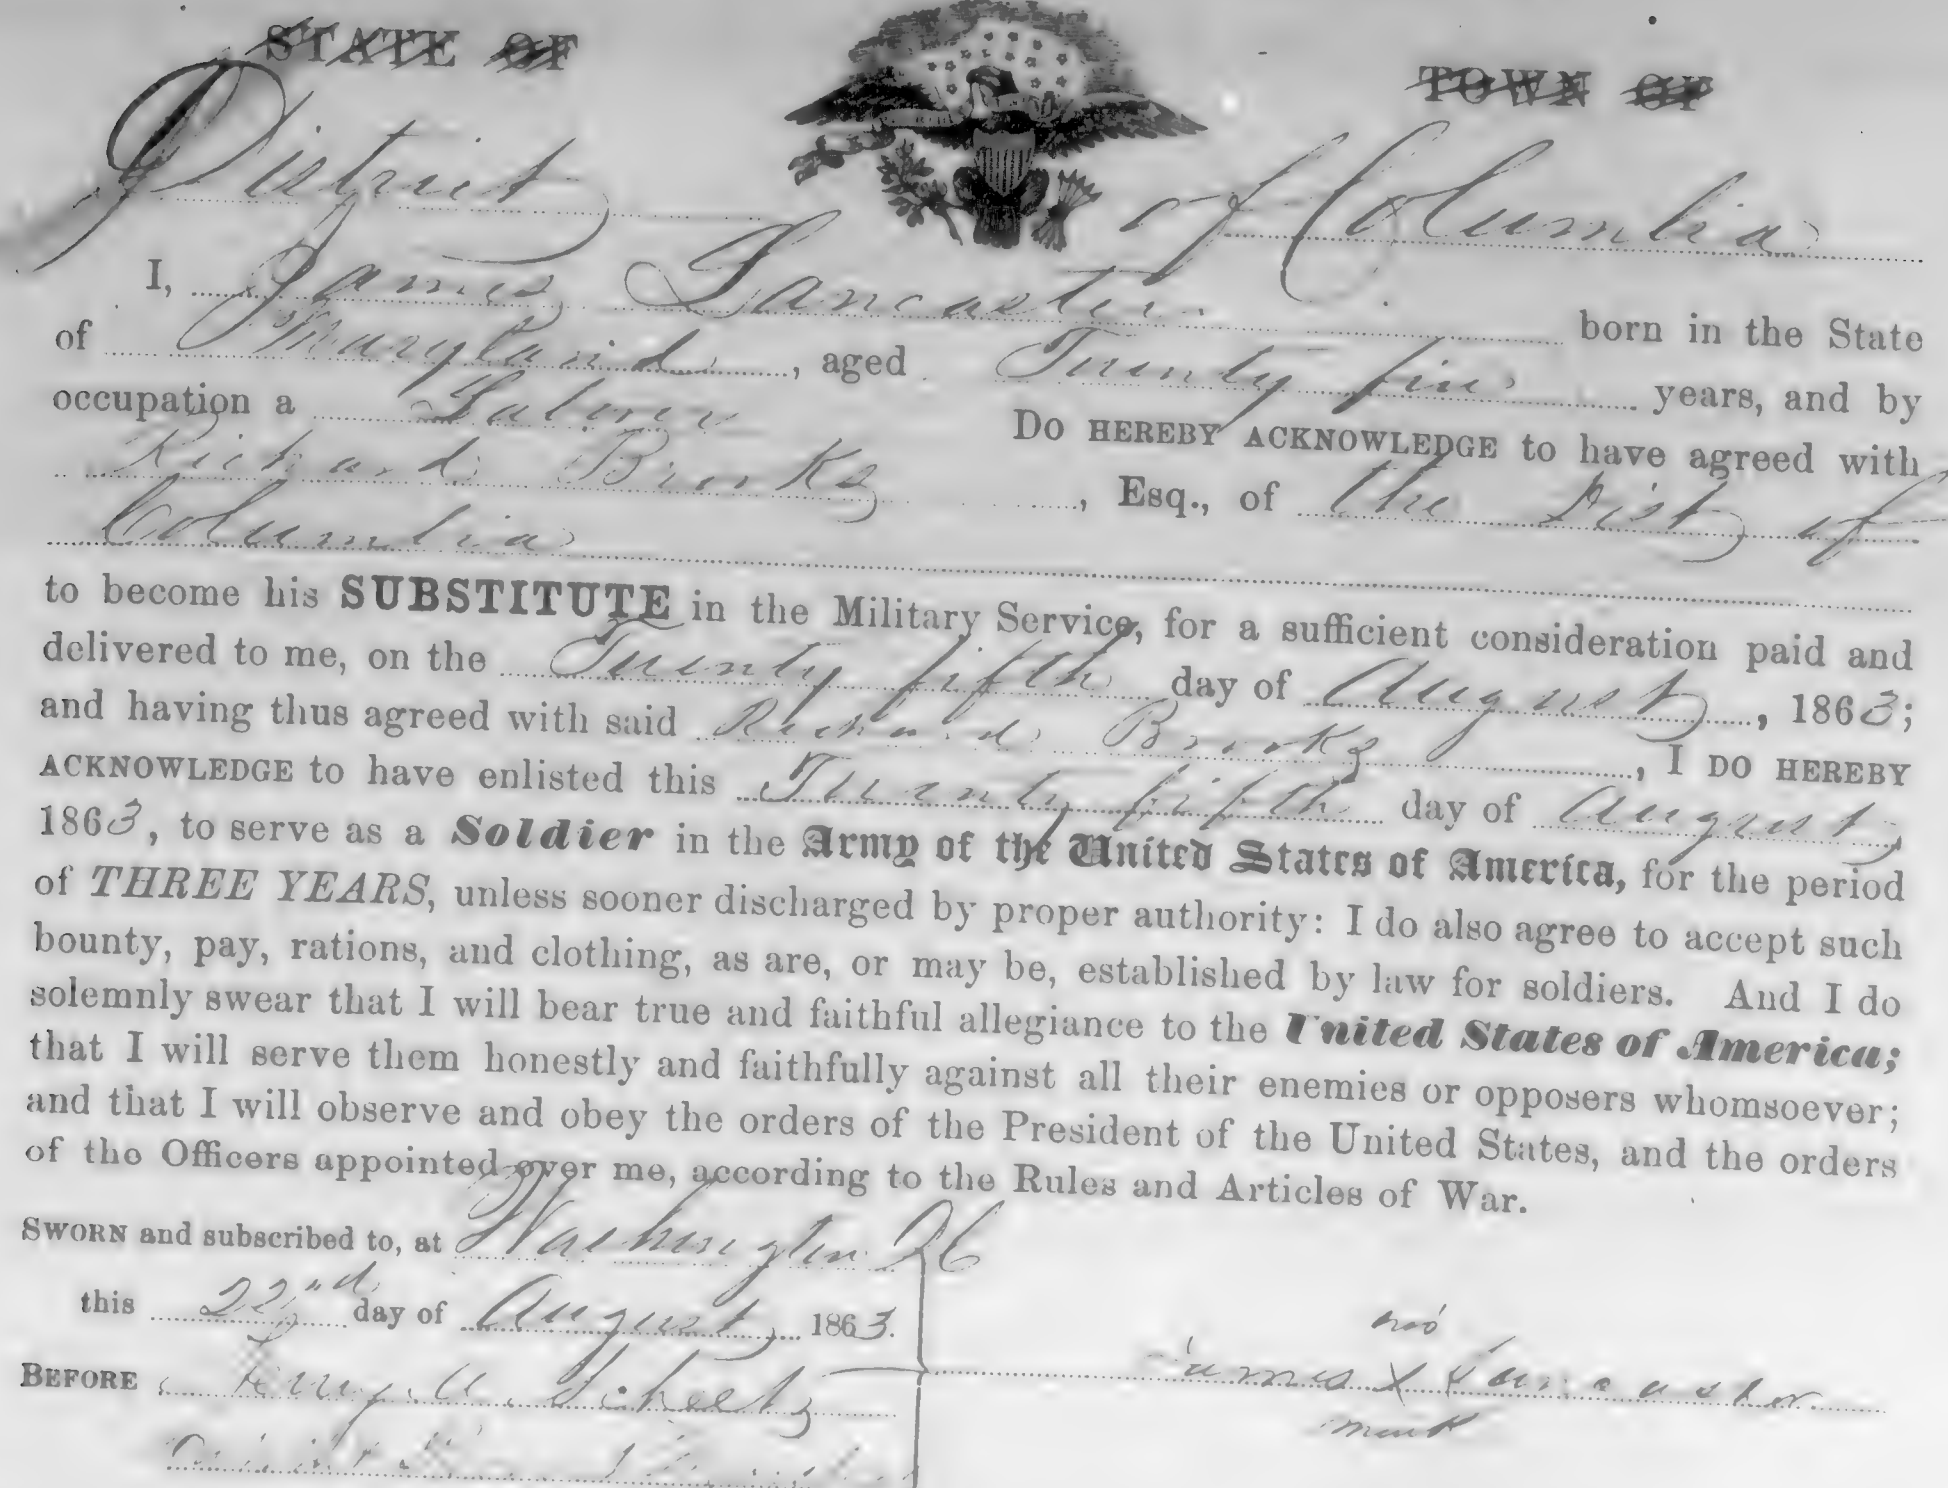 STATE OF TOWN OF
District of Columbia
I, James Lancaster born in the State
of Maryland, aged Twenty five years, and by
occupation a Labour Do HEREBY ACKNOWLEDGE to have agreed with
Richard Brooks, Esq., of the Dist of
Columbia
to become his SUBSTITUTE in the Military Service, for a sufficient consideration paid and
delivered to me, on the Twenty fifth day of August, 1863;
and having thus agreed with said Richard Brooks, I DO HEREBY
ACKNOWLEDGE to have enlisted this Twenty fifth day of August
1863, to serve as a Soldier in the Army of the United States of America, for the period
of THREE YEARS, unless sooner discharged by proper authority: I do also agree to accept such
bounty, pay, rations, and clothing, as are, or may be, established by law for soldiers. And I do
solemnly swear that I will bear true and faithful allegiance to the United States of America;
that I will serve them honestly and faithfully against all their enemies or opposers whomsoever;
and that I will observe and obey the orders of the President of the United States, and the orders
of the Officers appointed over me, according to the Rules and Articles of War.
SWORN and subscribed to, at Washington DC
this day of August 1863.
his
BEFORE Henry A. Scheetz James X Lancaster
mark